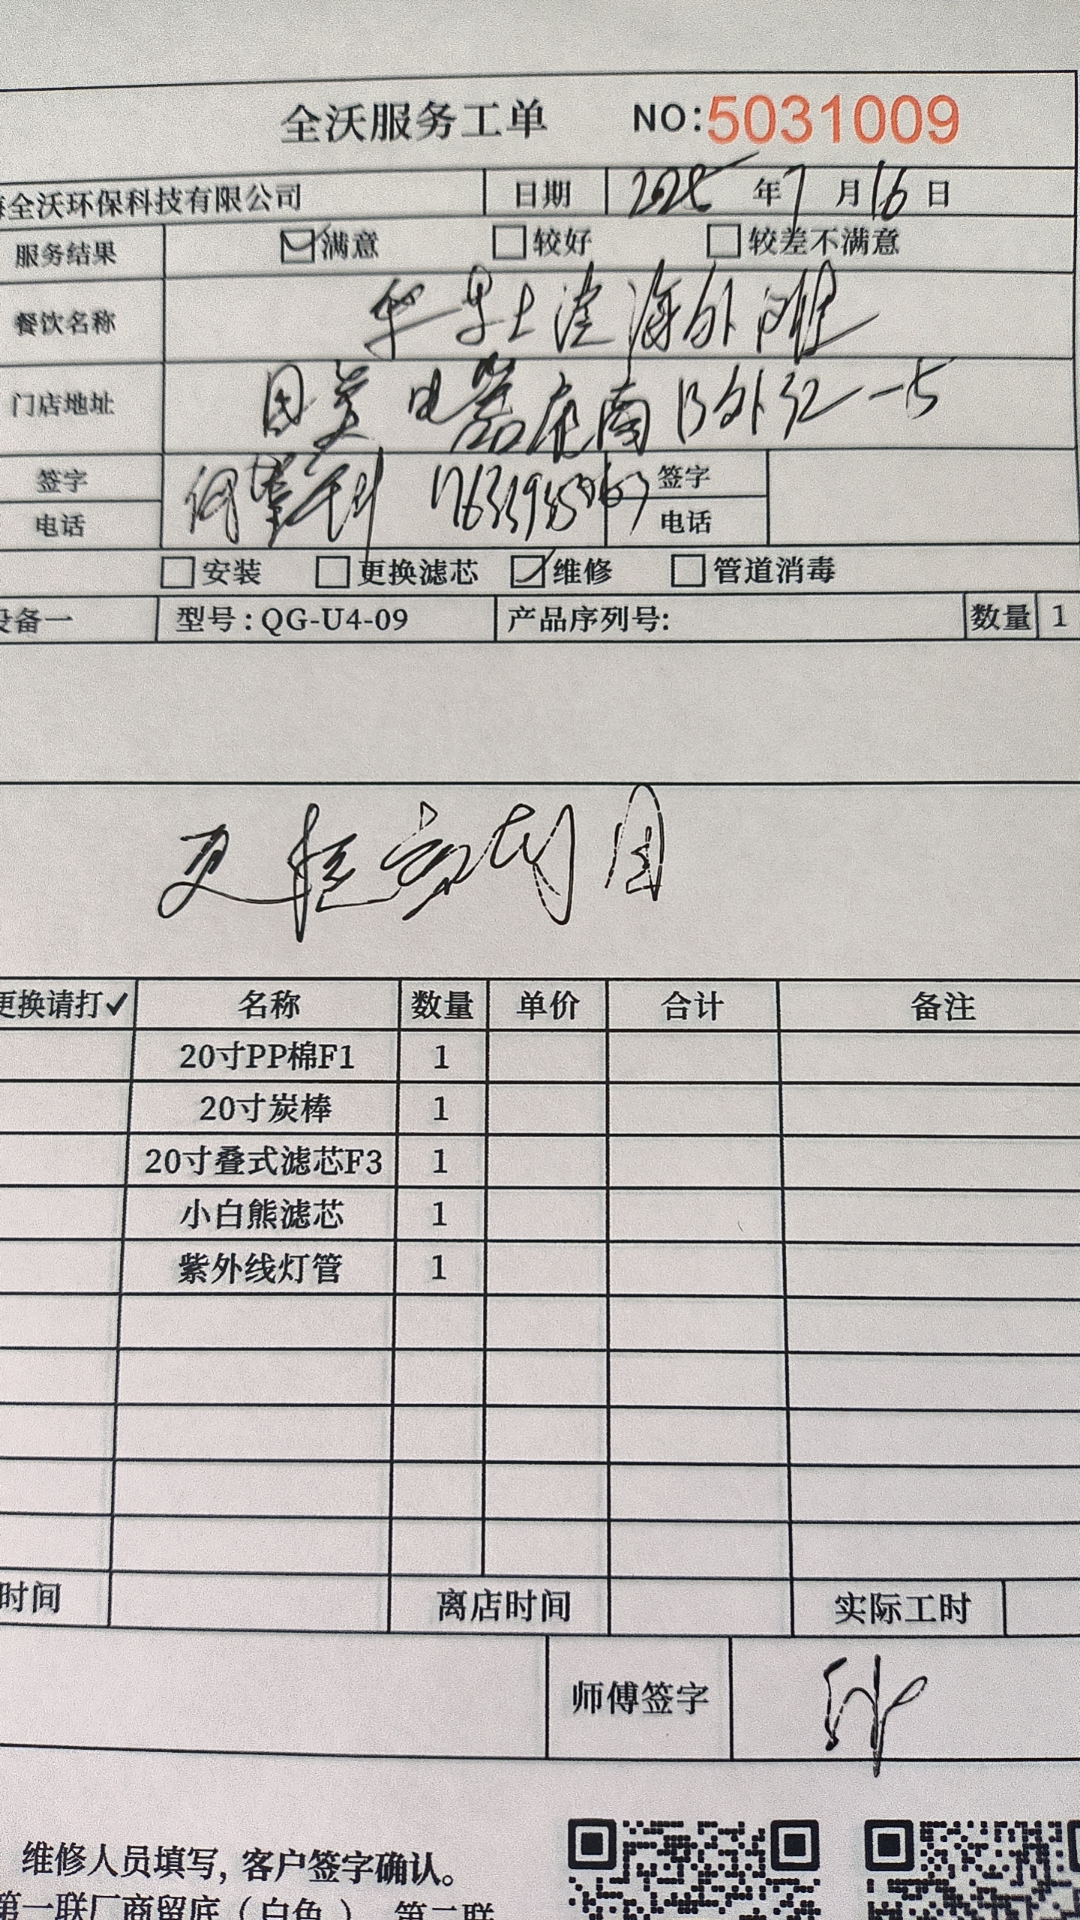 全沃服务工单 NO:5031009
海全沃环保科技有限公司 日期 2025年7月16日
服务结果 满意 较好 较差不满意
餐饮名称
门店地址 国美电器店南
签字 签字
电话 电话
安装 更换滤芯 维修 管道消毒
设备一 型号:QG-U4-09 产品序列号: 数量 1
更
更换请打✓ 名称 数量 单价 合计 备注
20寸PP棉F1 1
20寸炭棒 1
20寸叠式滤芯F3 1
小白熊滤芯 1
紫外线灯管 1
时间 离店时间 实际工时
师傅签字
维修人员填写,客户签字确认。
第一联厂商留底(白色) 第二联